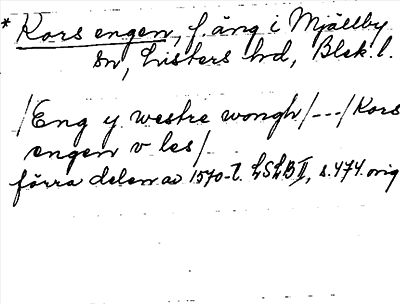 * Kors engen, f. äng i Mjällby
sn, Listers hd, Blek. l.
/Eng y westre wongh/---/Kors
engen v les/
förra delen av 1570-t. LSLB II, s. 474. orig